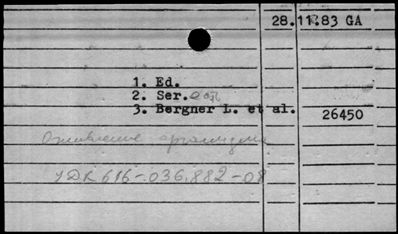 28.11.83 GA
1. Ed.
2. Ser.
3. Bergner L. et al. 26450
Оживление организма
УДК 616-.036.882-08